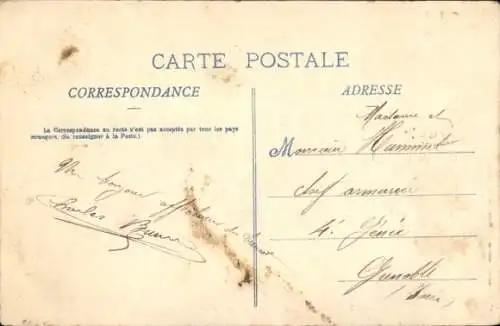 CARTE POSTALE
CORRESPONDANCE
ADRESSE
La Correspondance au recto n'est pas acceptée par tous les pays
étrangers. (Se renseigner à la Poste.)
Un bonjour affectueux de
Charles
Madame et
Monsieur
chef armurier
4e Génie
Grenoble
(Isère)